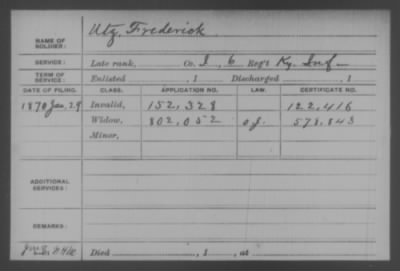 NAME OF SOLDIER: Utz, Frederick
SERVICE: Late rank, Co. I, 6 Reg't Ky. Inf
TERM OF SERVICE: Enlisted , 1 Discharged , 1
DATE OF FILING. CLASS. APPLICATION NO. LAW. CERTIFICATE NO.
1870 Jan. 29 Invalid, 152,328 122,416
Widow, 802,052 578,843
Minor,
ADDITIONAL SERVICES:
REMARKS:
Died , 1 , at